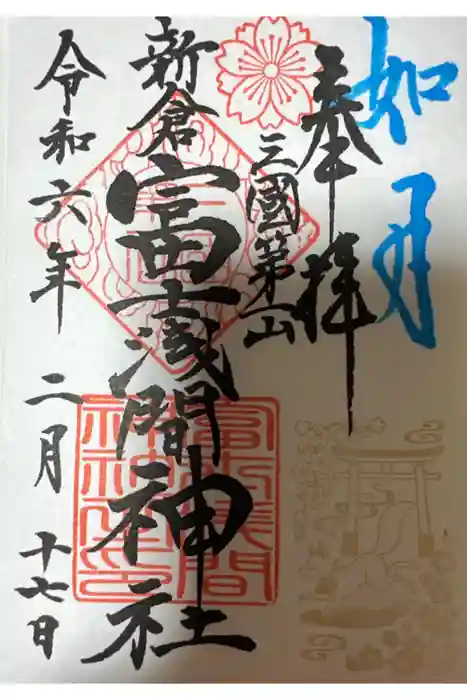 如月
奉拝
三國第一山
新倉
富士浅間神社
令和六年 二月 十七日